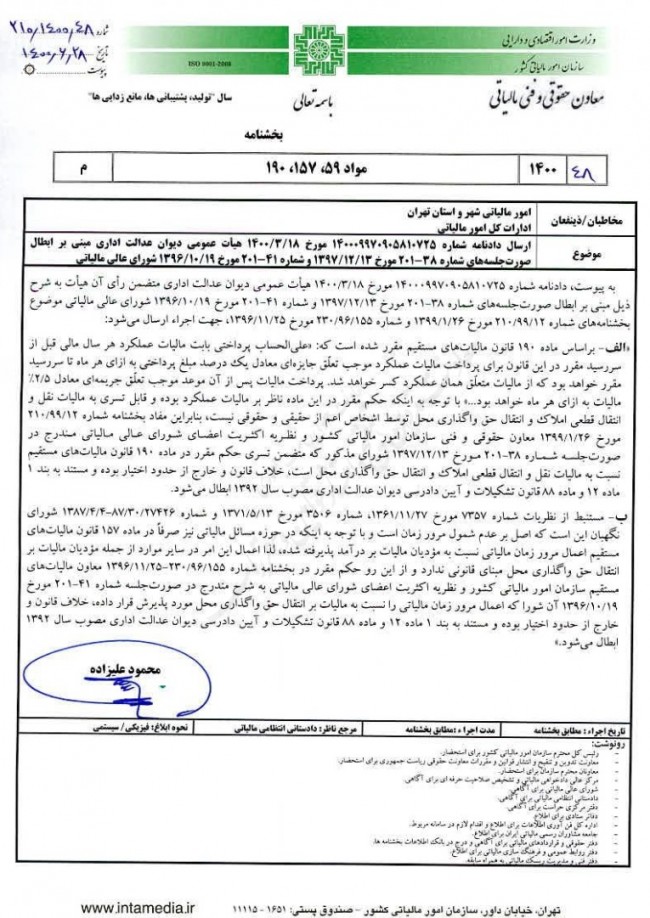 وزارت امور اقتصادی و دارایی
سازمان امور مالیاتی کشور
معاون حقوقی و فنی مالیاتی
باسمه تعالی
ISO 9001-2008
شماره ۲۱۰/۱۴۰۰/۴۸
تاریخ ۱۴۰۰/۶/۲۸
پیوست
سال "تولید، پشتیبانی ها، مانع زدایی ها"
بخشنامه
۴۸ ۱۴۰۰ مواد ۵۹، ۱۵۷، ۱۹۰ م
مخاطبان/ذینفعان
امور مالیاتی شهر و استان تهران
ادارات کل امور مالیاتی
موضوع
ارسال دادنامه شماره ۱۴۰۰۰۹۹۷۰۹۰۵۸۱۰۷۲۵ مورخ ۱۴۰۰/۳/۱۸ هیأت عمومی دیوان عدالت اداری مبنی بر ابطال
صورت‌جلسه‌های شماره ۳۸-۲۰۱ مورخ ۱۳۹۷/۱۲/۱۳ و شماره ۴۱-۲۰۱ مورخ ۱۳۹۶/۱۰/۱۹ شورای عالی مالیاتی
به پیوست، دادنامه شماره ۱۴۰۰۰۹۹۷۰۹۰۵۸۱۰۷۲۵ مورخ ۱۴۰۰/۳/۱۸ هیأت عمومی دیوان عدالت اداری متضمن رأی آن هیأت به شرح
ذیل مبنی بر ابطال صورت‌جلسه‌های شماره ۳۸-۲۰۱ مورخ ۱۳۹۷/۱۲/۱۳ و شماره ۴۱-۲۰۱ مورخ ۱۳۹۶/۱۰/۱۹ شورای عالی مالیاتی موضوع
بخشنامه‌های شماره ۲۱۰/۹۹/۱۲ مورخ ۱۳۹۹/۱/۲۶ و شماره ۲۳۰/۹۶/۱۵۵ مورخ ۱۳۹۶/۱۱/۲۵، جهت اجراء ارسال می‌شود:
«الف- براساس ماده ۱۹۰ قانون مالیات‌های مستقیم مقرر شده است که: «علی‌الحساب پرداختی بابت مالیات عملکرد هر سال مالی قبل از
سررسید مقرر در این قانون برای پرداخت مالیات عملکرد موجب تعلّق جایزه‌ای معادل یک درصد مبلغ پرداختی به ازای هر ماه تا سررسید
مقرر خواهد بود که از مالیات متعلّق همان عملکرد کسر خواهد شد. پرداخت مالیات پس از آن موعد موجب تعلّق جریمه‌ای معادل ۲/۵٪
مالیات به ازای هر ماه خواهد بود...» با توجه به اینکه حکم مقرر در این ماده ناظر بر مالیات عملکرد بوده و قابل تسری به مالیات نقل و
انتقال قطعی املاک و انتقال حق واگذاری محل توسط اشخاص اعم از حقیقی و حقوقی نیست، بنابراین مفاد بخشنامه شماره ۲۱۰/۹۹/۱۲
مورخ ۱۳۹۹/۱/۲۶ معاون حقوقی و فنی سازمان امور مالیاتی کشور و نظریه اکثریت اعضای شورای عالی مالیاتی مندرج در
صورت‌جلسه شماره ۳۸-۲۰۱ مورخ ۱۳۹۷/۱۲/۱۳ شورای مذکور که متضمن تسری حکم مقرر در ماده ۱۹۰ قانون مالیات‌های مستقیم
نسبت به مالیات نقل و انتقال قطعی املاک و انتقال حق واگذاری محل است، خلاف قانون و خارج از حدود اختیار بوده و مستند به بند ۱
ماده ۱۲ و ماده ۸۸ قانون تشکیلات و آیین دادرسی دیوان عدالت اداری مصوب سال ۱۳۹۲ ابطال می‌شود.
ب- مستنبط از نظریات شماره ۷۲۵۷ مورخ ۱۳۶۱/۱۱/۲۷، شماره ۳۵۰۶ مورخ ۱۳۷۱/۵/۱۳ و شماره ۸۷/۳۰/۲۷۴۲۶-۱۳۸۷/۴/۴ شورای
نگهبان این است که اصل بر عدم شمول مرور زمان است و با توجه به اینکه در حوزه مسائل مالیاتی نیز صرفاً در ماده ۱۵۷ قانون مالیات‌های
مستقیم اعمال مرور زمان مالیاتی نسبت به مؤدیان مالیات بر درآمد پذیرفته شده، لذا اعمال این امر در سایر موارد از جمله مؤدیان مالیات بر
انتقال حق واگذاری محل مبنای قانونی ندارد و از این رو حکم مقرر در بخشنامه شماره ۲۳۰/۹۶/۱۵۵-۱۳۹۶/۱۱/۲۵ معاون مالیات‌های
مستقیم سازمان امور مالیاتی کشور و نظریه اکثریت اعضای شورای عالی مالیاتی به شرح مندرج در صورت‌جلسه شماره ۴۱-۲۰۱ مورخ
۱۳۹۶/۱۰/۱۹ آن شورا که اعمال مرور زمان مالیاتی را نسبت به مالیات بر انتقال حق واگذاری محل مورد پذیرش قرار داده، خلاف قانون و
خارج از حدود اختیار بوده و مستند به بند ۱ ماده ۱۲ و ماده ۸۸ قانون تشکیلات و آیین دادرسی دیوان عدالت اداری مصوب سال ۱۳۹۲
ابطال می‌شود.»
محمود علیزاده
تاریخ اجراء : مطابق بخشنامه مدت اجراء :مطابق بخشنامه مرجع ناظر: دادستانی انتظامی مالیاتی نحوه ابلاغ: فیزیکی/ سیستمی
رونوشت:
- رئیس کل محترم سازمان امور مالیاتی کشور برای استحضار.
- معاونت تدوین و تنقیح و انتشار قوانین و مقررات معاونت حقوقی ریاست جمهوری برای استحضار.
- معاونان محترم سازمان برای استحضار.
- مرکز عالی دادخواهی مالیاتی و تشخیص صلاحیت حرفه ای برای آگاهی.
- شورای عالی مالیاتی برای آگاهی.
- دادستانی انتظامی مالیاتی برای آگاهی.
- دفتر مرکزی حراست برای آگاهی.
- دفاتر ستادی برای اطلاع.
- اداره کل فن آوری اطلاعات برای اطلاع و اقدام لازم در سامانه مربوط.
- جامعه مشاوران رسمی مالیاتی ایران برای اطلاع.
- دفتر حقوقی و قراردادهای مالیاتی برای آگاهی و درج در بانک اطلاعات بخشنامه ها.
- دفتر روابط عمومی و فرهنگ سازی مالیاتی برای اطلاع.
- دفتر فنی و مدیریت ریسک مالیاتی به همراه سابقه.
تهران، خیابان داور، سازمان امور مالیاتی کشور - صندوق پستی: ۱۶۵۱ - ۱۱۱۱۵ www.intamedia.ir